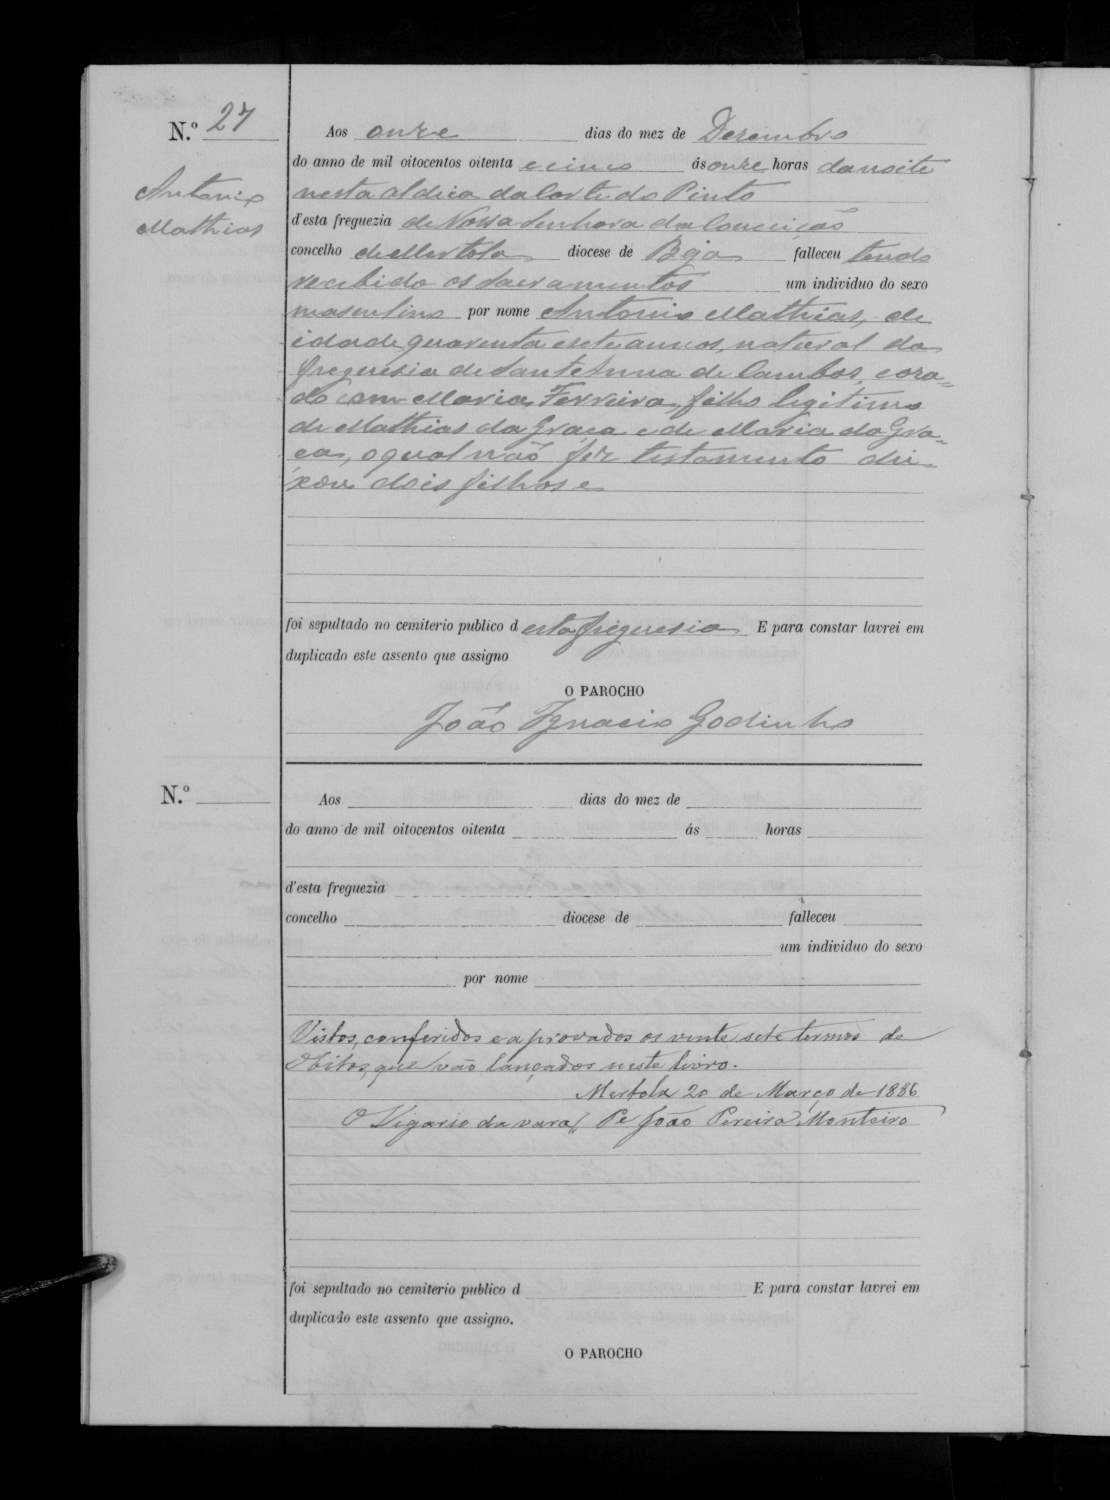 N.º 27
Antonio
Mathias
Aos onze dias do mez de Dezembro
do anno de mil oitocentos oitenta e cinco ás onze horas da noite
nesta aldeia da Corte do Pinto
d'esta freguezia de Nossa Senhora da Conceição
concelho de Mertola diocese de Beja falleceu tendo
recebido os sacramentos um individuo do sexo
masculino por nome Antonio Mathias, de
idade quarenta e sete annos, natural da
freguesia de Sant'Anna de Cambas, casa=
do com Maria Ferreira, filho legitimo
de Mathias da Graça e de Maria da Gra=
ça, o qual não fez testamento dei=
xou dois filhos e
foi sepultado no cemiterio publico d esta freguesia E para constar lavrei em
duplicado este assento que assigno
O PAROCHO
João Ignacio Godinho
N.º
Aos dias do mez de
do anno de mil oitocentos oitenta ás horas
d'esta freguezia
concelho diocese de falleceu
um individuo do sexo
por nome
Vistos, conferidos e aprovados os vinte sete termos de
Obitos, que vão lançados neste livro.
Mertola 20 de Março de 1886
O Vigario da vara, Pe João Pereira Monteiro
foi sepultado no cemiterio publico d E para constar lavrei em
duplicado este assento que assigno.
O PAROCHO